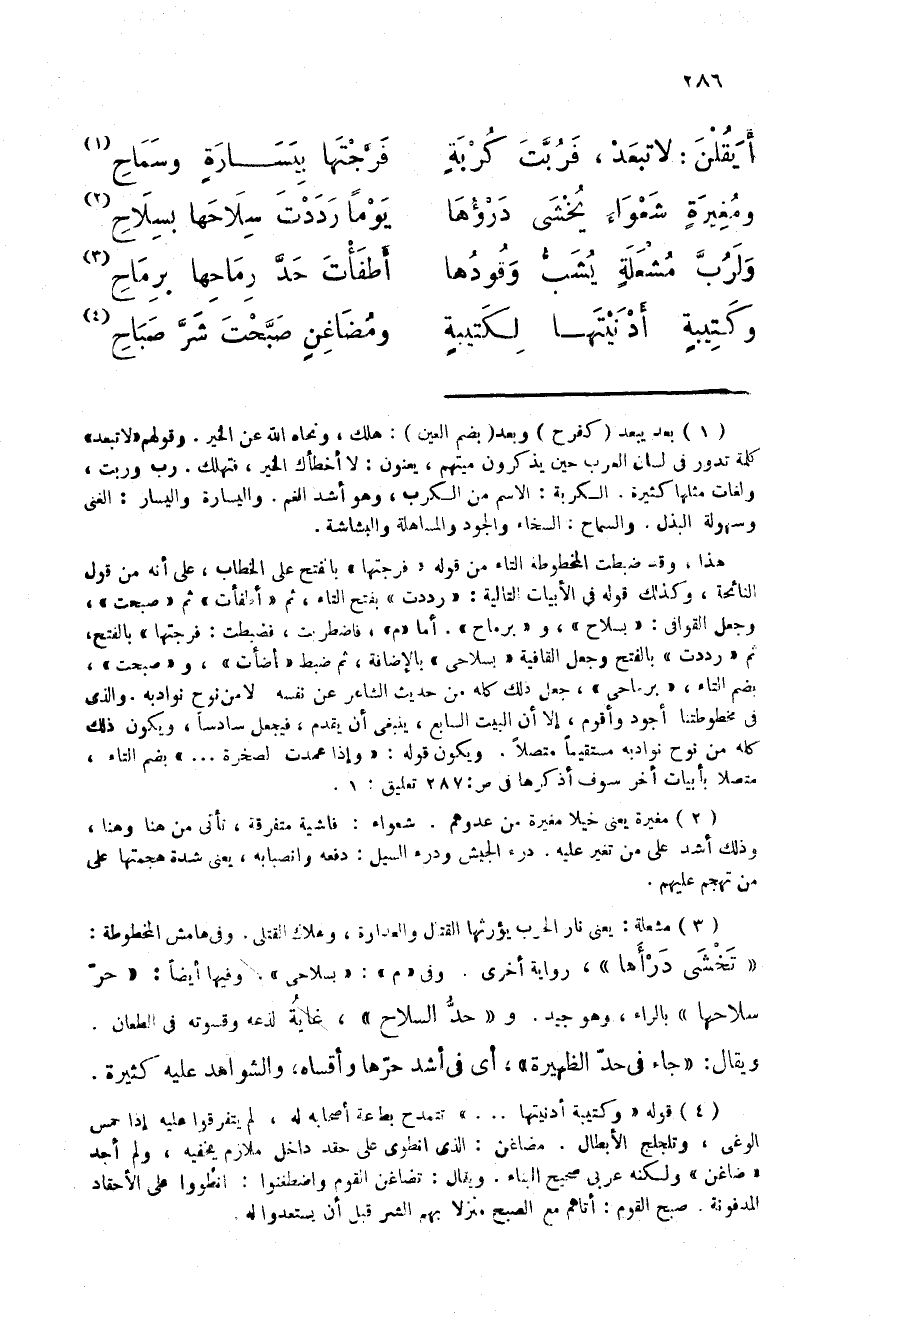 ٢٨٦
أَيَقُلْنَ : لا تبعَدْ ، فَرُبَّتَ كُرْبَةٍ فَرَّجْتَهَا بِيَسَــارَةٍ وسَمَاحِ (١)
ومُغِيرَةٍ شَعْوَاءَ يُخْشَى دَرْؤُهَا يَوْماً رَدَدْتَ سِلَاحَها بسِلَاحِ (٢)
وَلَرُبَّ مُشْعَلَةٍ يُشَبُّ وَقُودُها أَطفَأْتَ حَدَّ رِمَاحِها برِمَاحِ (٣)
وكَتِيبةٍ أَدْنَيْتَهَــا لِـكَتيبةٍ ومُضَاغِنٍ صَبَّحْتَ شَرَّ صَبَاحِ (٤)
( ١ ) بعد يبعد ( كفرح ) وبعد ( بضم العين ) : هلك ، ونحاه الله عن الخير . وقولهم « لا تبعد »
كلمة تدور فى لسان العرب حين يذكرون ميتهم ، يعنون : لا أخطأك الخير ، فتهلك . رب وربت ،
ولغات مثلها كثيرة . الكربة : الاسم من الكرب ، وهو أشد الغم . واليسارة واليسار : الغنى
وسهولة البذل . والسماح : السخاء والجود والمساهلة والبشاشة .
هذا ، وقد ضبطت المخطوطة التاء من قوله « فرجتها » بالفتح على الخطاب ، على أنه من قول
النائحة ، وكذلك قوله فى الأبيات التالية : « رددت » بفتح التاء ، ثم « أطفأت » ثم « صبحت » ،
وجعل القوافى : « بسلاح » ، و « برماح » . أما « م » ، فاضطربت ، فضبطت : فرجتها » بالفتح ،
ثم « رددت » بالفتح وجعل القافية « بسلاحى » بالإضافة ، ثم ضبط « أضأت » ، و « صبحت » ،
بضم التاء ، « برماحى » ، جعل ذلك كله من حديث الشاعر عن نفسه لا من نوح نوادبه . والذى
فى مخطوطتنا أجود وأقوم ، إلا أن البيت السابع ، ينبغى أن يقدم ، فيجعل سادساً ، ويكون ذلك
كله من نوح نوادبه مستقيماً متصلاً . ويكون قوله : « وإذا عمدت لصخرة ... » بضم التاء ،
متصلا بأبيات أخر سوف أذكرها فى ص : ٢٨٧ تعليق : ١ .
( ٢ ) مغيرة يعنى خيلا مغيرة من عدوهم . شعواء : فاشية متفرقة ، تأتى من هنا وهنا ،
وذلك أشد على من تغير عليه . درء الجيش ودرء السيل : دفعه وانصبابه ، يعنى شدة هجمتها على
من تهجم عليهم .
( ٣ ) مشعلة : يعنى نار الحرب يؤرثها القتال والعداوة ، وهلاك القتلى . وفى هامش المخطوطة :
« تَخْشَى دَرْأَها » ، رواية أخرى . وفى « م » : « بسلاحى » . وفيها أيضاً : « حرّ
سلاحها » بالراء ، وهو جيد . و « حدُّ السلاح » ، غايةُ لذعه وقسوته فى الطعان .
ويقال : « جاء فى حدّ الظهيرة » ، أى فى أشد حرّها وأقساه ، والشواهد عليه كثيرة .
( ٤ ) قوله « وكتيبة أدنيتها ... » تتمدح بطاعة أصحابه له ، لم يتفرقوا عليه إذا حمس
الوغى ، وتلجلج الأبطال . مضاغن : الذى انطوى على حقد داخل ملازم يخفيه ، ولم أجد
« ضاغن » ولكنه عربى صحيح البناء . ويقال : تضاغن القوم واضطغنوا : انطووا على الأحقاد
المدفونة . صبح القوم : أتاهم مع الصبح منزلا بهم الشر قبل أن يستعدوا له .